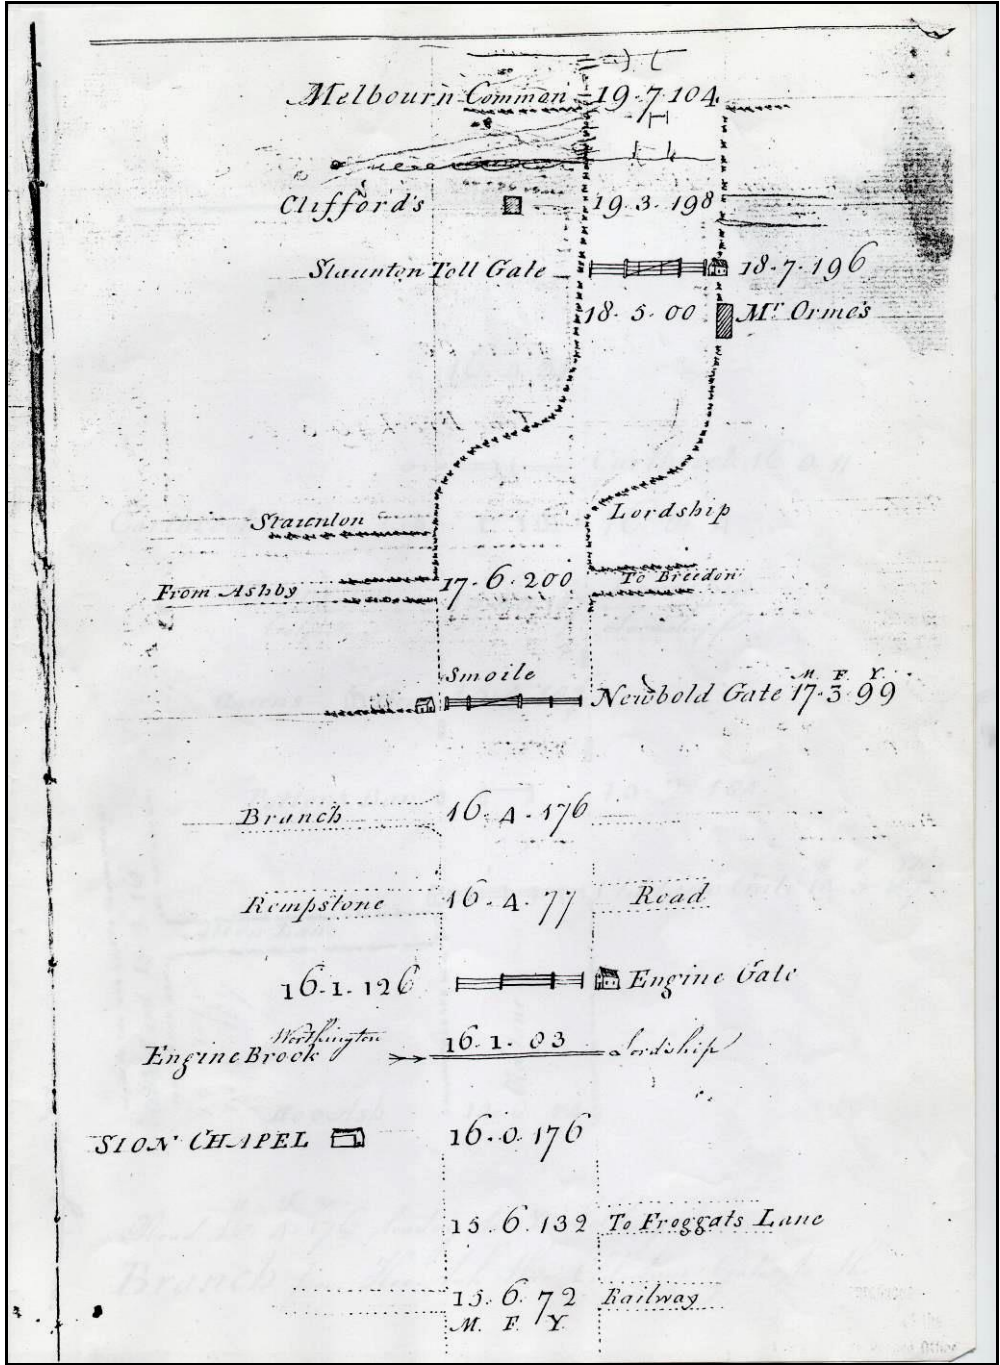 Melbourn Common 19-7-104
Clifford's 19.3.198
Staunton Toll Gate 18-7-196
18.5.00 Mr Orme's
Lordship
Staunton
From Ashby 17-6.200 To Breedon
Smoile M. F. Y.
Newbold Gate 17-3-99
Branch 16.4.176
Rempstone 16.4.77 Road
16-1-126 Engine Gate
Worthington
Engine Brook 16.1.03 Lordship
SION CHAPEL 16.0.176
15.6.132 To Froggats Lane
15.6.72 Railway
M. F. Y.